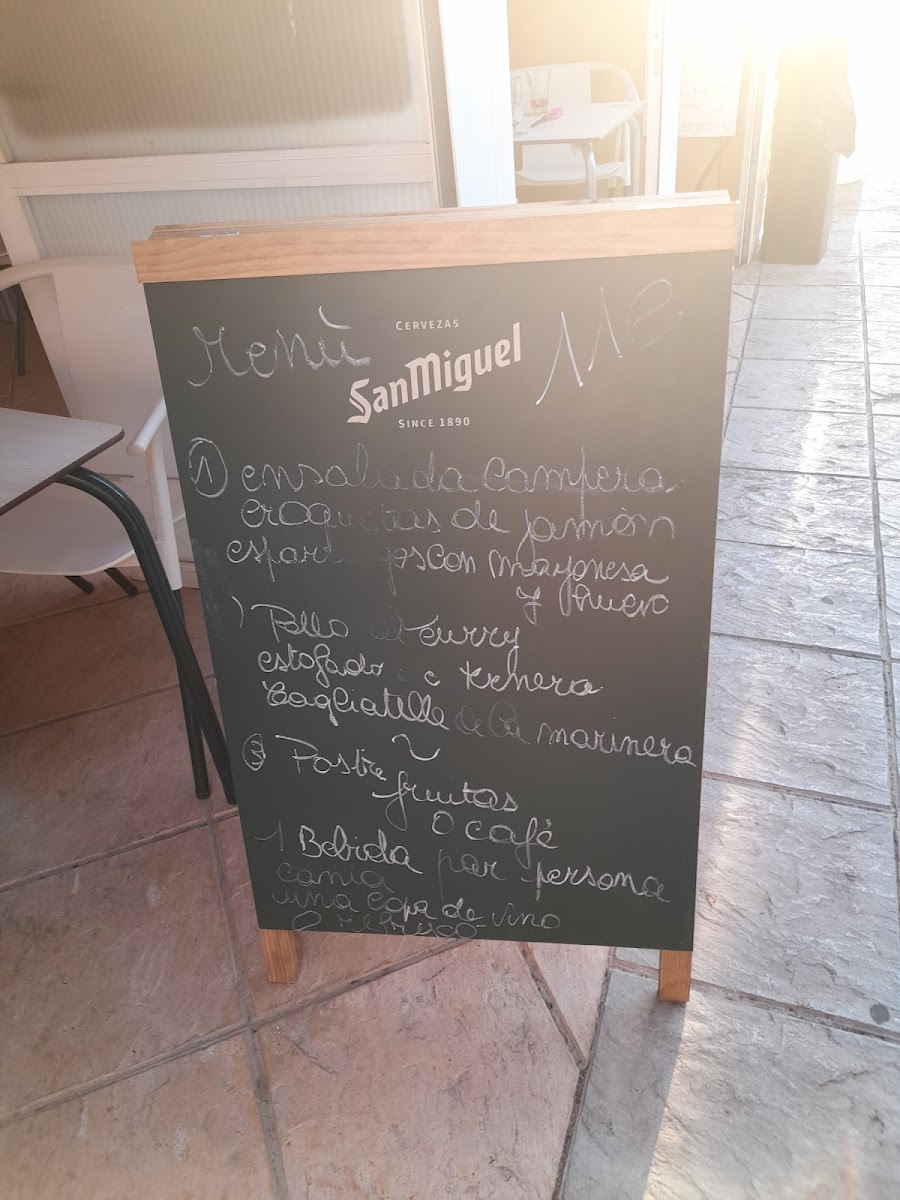 Menù
CERVEZAS
SanMiguel
SINCE 1890
11€
① ensalada Campera
croquetas de jamón
con mayonesa
y huevo
) Pollo al Curry
estofado ternera
Tagliatelle de la marinera
③ Postre
fruitas
O café
1 Bebida por persona
cania
una copa de vino
O refresco